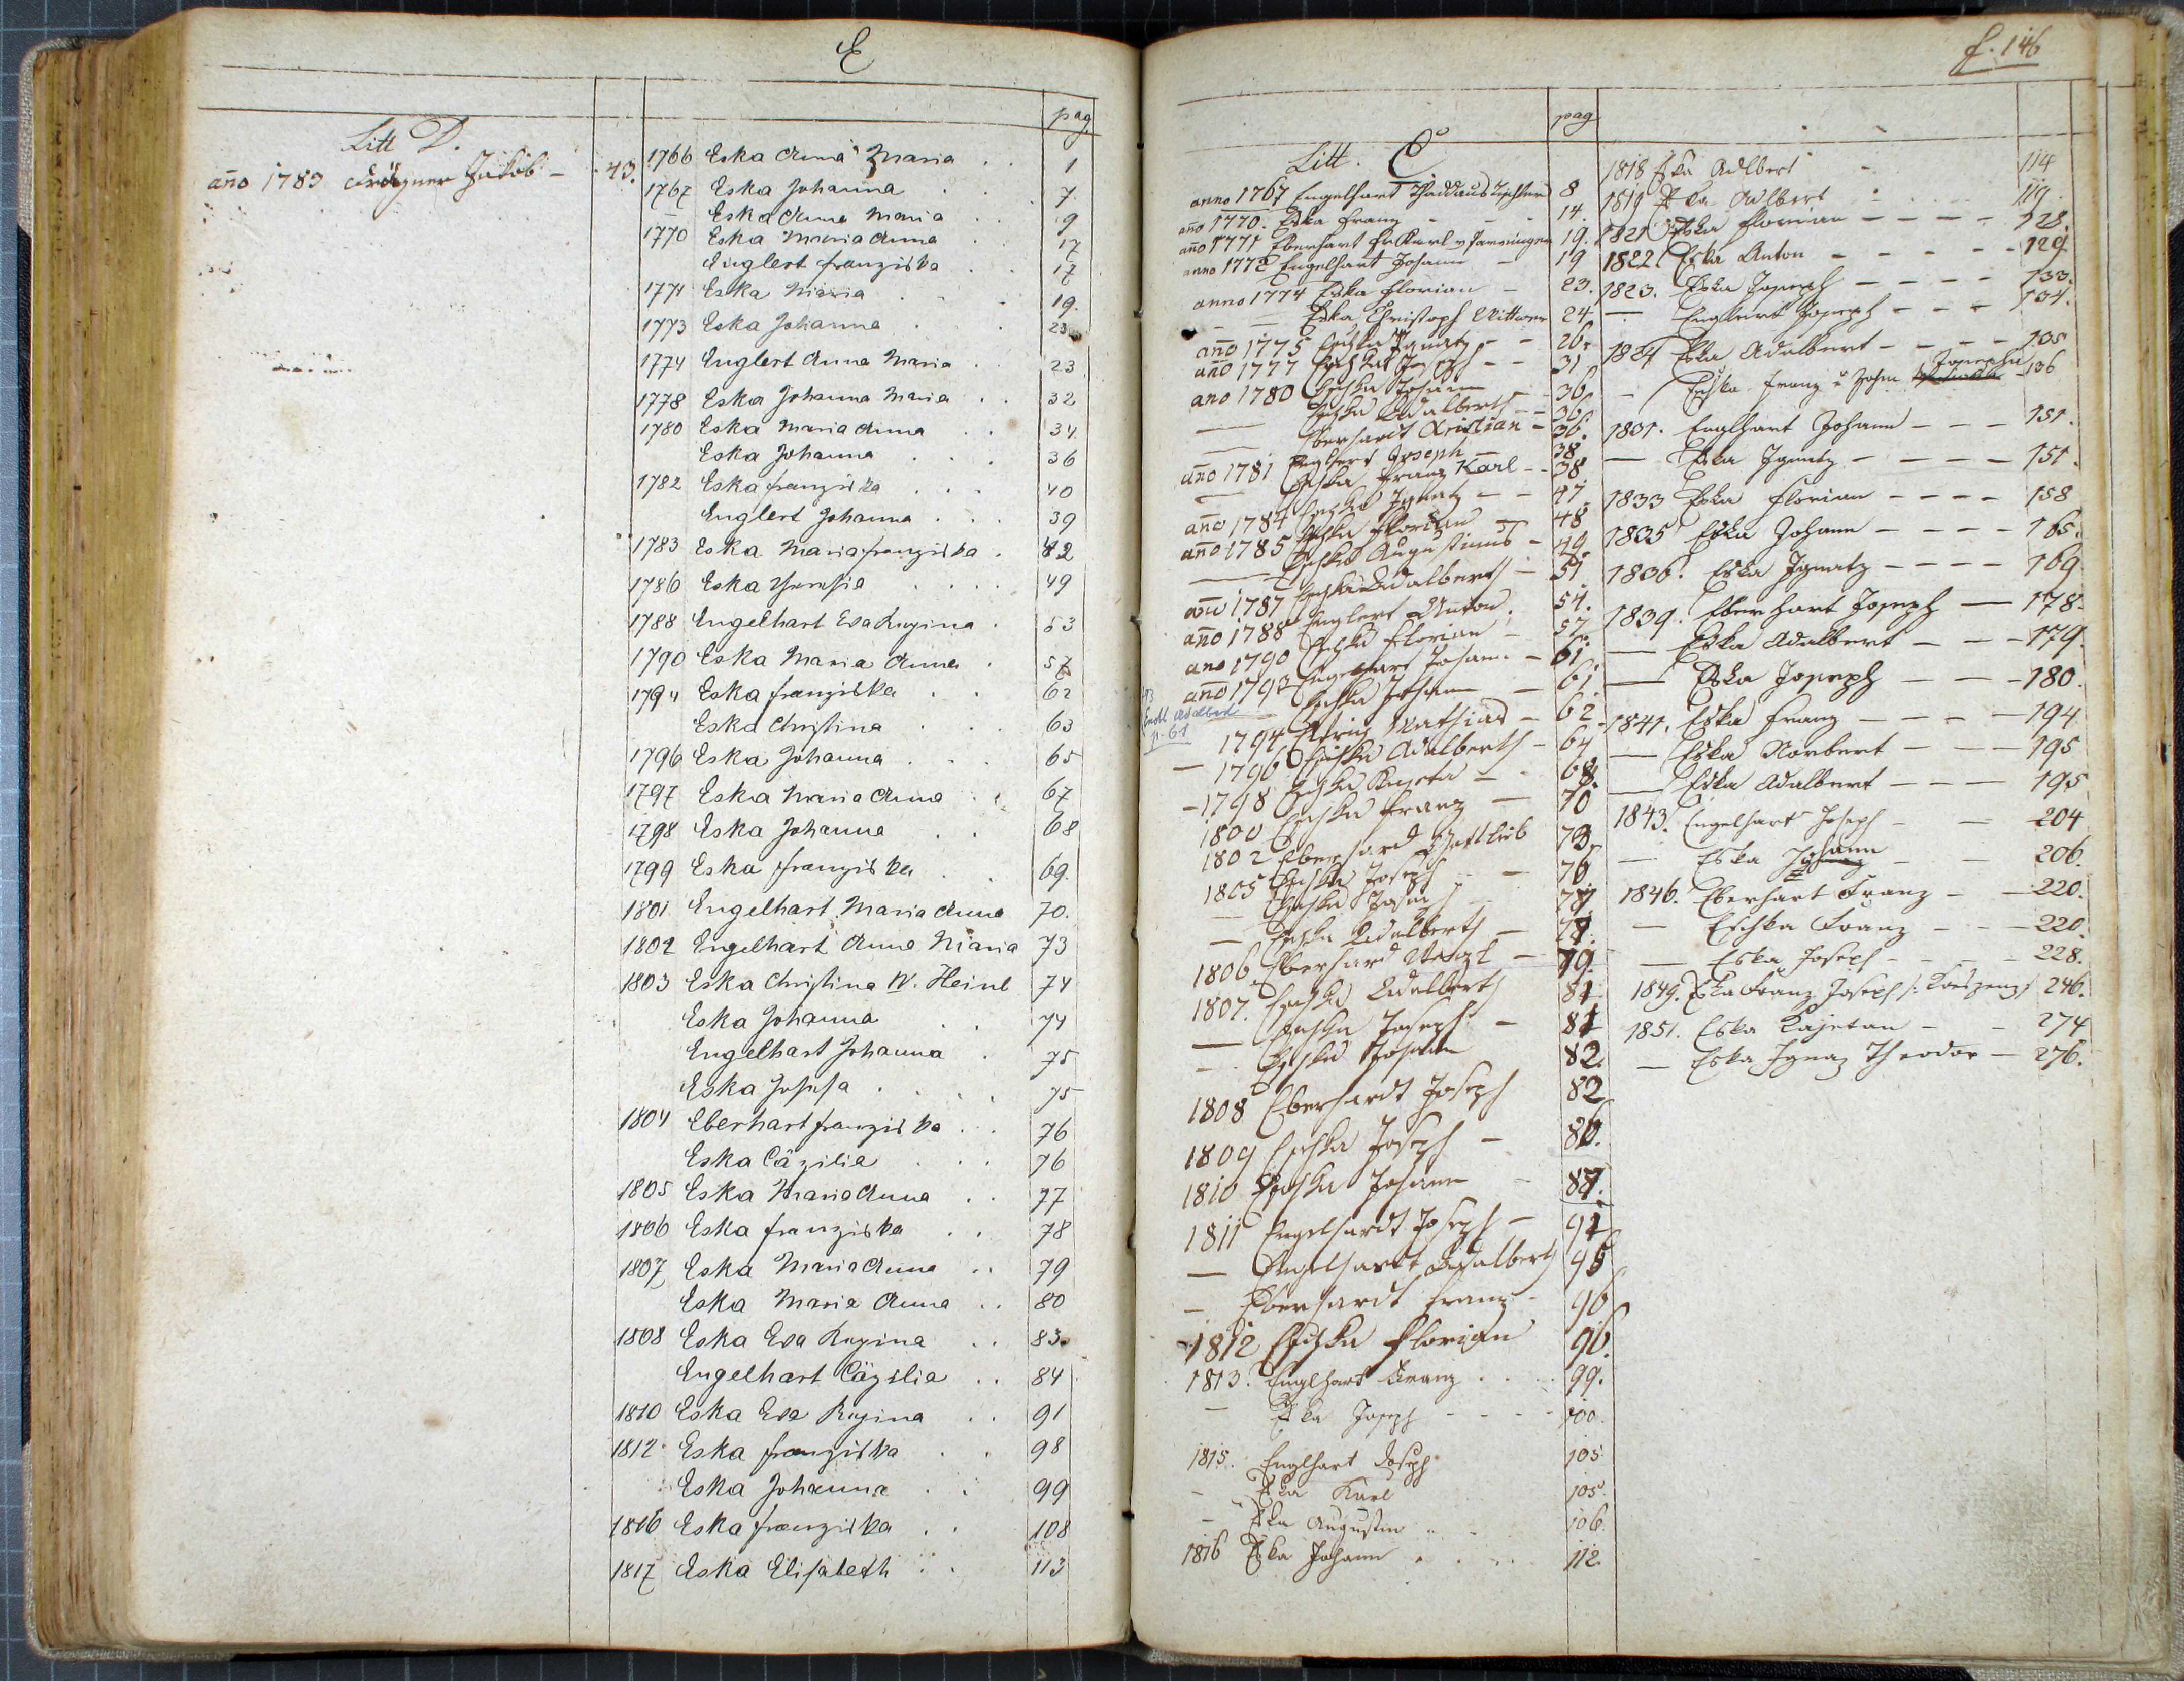 E
pag
Litt D.
año 1783 Jakob - 43.
1766 Eska Anna Maria . . 1
1767 Eska Johanna . 7
Eska Anna Maria . . 9
1770 Eska Maria Anna . 17
Englert Franziska . . 17
1771 Eska Maria . . . 19.
1773 Eska Johanna . . 23
1774 Englert Anna Maria . 23
1778 Eska Johanna Maria . . 32
1780 Eska Maria Anna . . 34
Eska Johanna . . . 36
1782 Eska Franziska . . . 40
Englert Johanna . . . 39
1783 Eska Maria Franziska . 42
1786 Eska Theresia . . . 49
1788 Engelhart Eva Regina . 53
1790 Eska Maria Anna . 57
1794 Eska Franziska . . 62
Eska Christina . . . 63
1796 Eska Johanna . . . 65
1797 Eska Maria Anna . . 67
1798 Eska Johanna . . 68
1799 Eska Franziska . . 69.
1801 Engelhart Maria Anna 70.
1802 Engelhart Anna Maria 73
1803 Eska Christina N. Heinl 74
Eska Johanna . . 74
Engelhart Johanna . 75
Eska Josefa . . . . 75
1804 Eberhart Franziska . . . 76
Eska Cäzilia . . . 76
1805 Eska Maria Anna . . 77
1806 Eska Franziska . . 78
1807 Eska Maria Anna . . 79
Eska Maria Anna . . 80
1808 Eska Eva Regina . . 83.
Engelhart Cäzilia . . 84
1810 Eska Eva Regina . . 91
1812 Eska Franziska . . 98
Eska Johanna . . 99
1816 Eska Franziska . . 108
1817 Eska Elisabeth . . 113
f. 146
pag
Litt. E
anno 1767 Engelhart Thaddäus 8
año 1770. Eska Franz - - - 14.
año 1771 Eberhart Karl v 19.
anno 1772 Engelhart Johann - 19
anno 1774 Eska Florian - 23.
Eska Christoph Wittwer 24
año 1775 Eschka Ignatz - - 26.
año 1777 Eschka Joseph - - 31
ano 1780 Eschka Johann - 36
— Eschka Adalberth - - 36.
— Eberhardt Cristian - 36.
año 1781 Englhert Joseph - 38
— Eschka Franz Karl - - 38
año 1784 Eschka Ignatz - - 47
año 1785 Eschka Florian - 48
— Eschka Augustinus - 49.
año 1787 Eschka Adalberth - 51
año 1788 Englert Anton. 54.
ano 1790 Eschka Florian - 57.
año 1793 Engelhart Johann - 61
— Eschka Johann - 61.
Adalbert
p. 61
1794 Mathias - 62
— 1796 Eschka Adalberth - 64
- 1798 Eschka Kajetan - . 68.
1800 Eschka Franz - 70
1802 Eberhard Gottlieb 73.
1805 Eschka Joseph - - 76
— Eschka Joseph 77
— Eschka Adalberth - 78.
1806 Eberhard Wenzl - 79.
1807. Eschka Adalberth 81
— Eschka Joseph - 81
— Eschka Johann 82.
1808 Eberhardt Joseph 82
1809 Eschka Joseph - 86.
1810 Eschka Johann - 87.
1811 Engelhardt Joseph - 91
— Engelhardt Adalbert 95
— Eberhardt Franz - 96
1812 Eschka Florian 96.
1813. Englhart Franz . . . 99.
— Eska Joseph - - - - 100.
1815. Englhart Joseph 105
- Eska Karl 105.
- Eska Augustin . - 106.
1816 Eska Johann . . . 112.
1818 Eska Adlbert - 114
1819 Eska Adlbert . . 119.
1821 Eska Florian - - - - 128.
1822. Eska Anton - - - - - 129
1823. Eska Joseph - - - - 133.
— Englert Joseph - - - 134.
1824 Eska Adalbert - - - - 135
- Eschka Franz u Josephu 136
1831. Englhart Johann - - - 151.
— Eska Ignatz - - - - 151.
1833 Eska Florian - - - - 158
1835 Eska Johann - - - - 165.
1836. Eska Ignatz - - - - 169
1839. Eberhart Joseph — 178.
— Eska Adalbert - - - 179.
— Eska Joseph - - - 180.
1841. Eska Franz - - - - 194
— Eska Norbert - - - 195
— Eska Adalbert - - - 195
1843. Engelhart Joseph - - 204
— Eska Johann - - 206.
1846. Eberhart Franz - - 220.
— Eschka Franz - - - 220.
— Eska Joseph - - - - 228.
1849. Eska Franz Joseph 246.
1851. Eska Kajetan - - 274
— Eska Ignaz Theodor - 276.